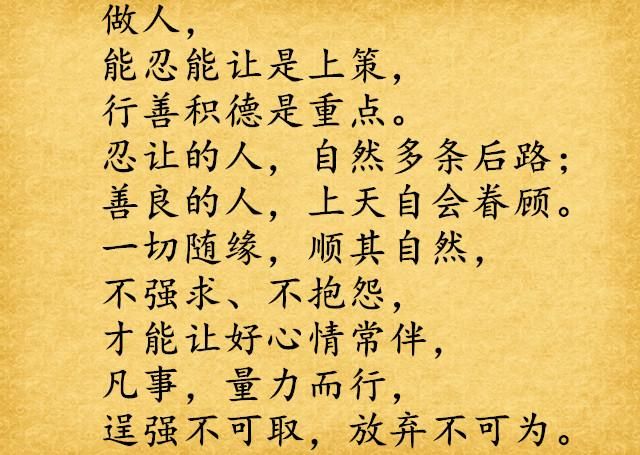 做人，
能忍能让是上策，
行善积德是重点。
忍让的人，自然多条后路；
善良的人，上天自会眷顾。
一切随缘，顺其自然，
不强求、不抱怨，
才能让好心情常伴，
凡事，量力而行，
逞强不可取，放弃不可为。